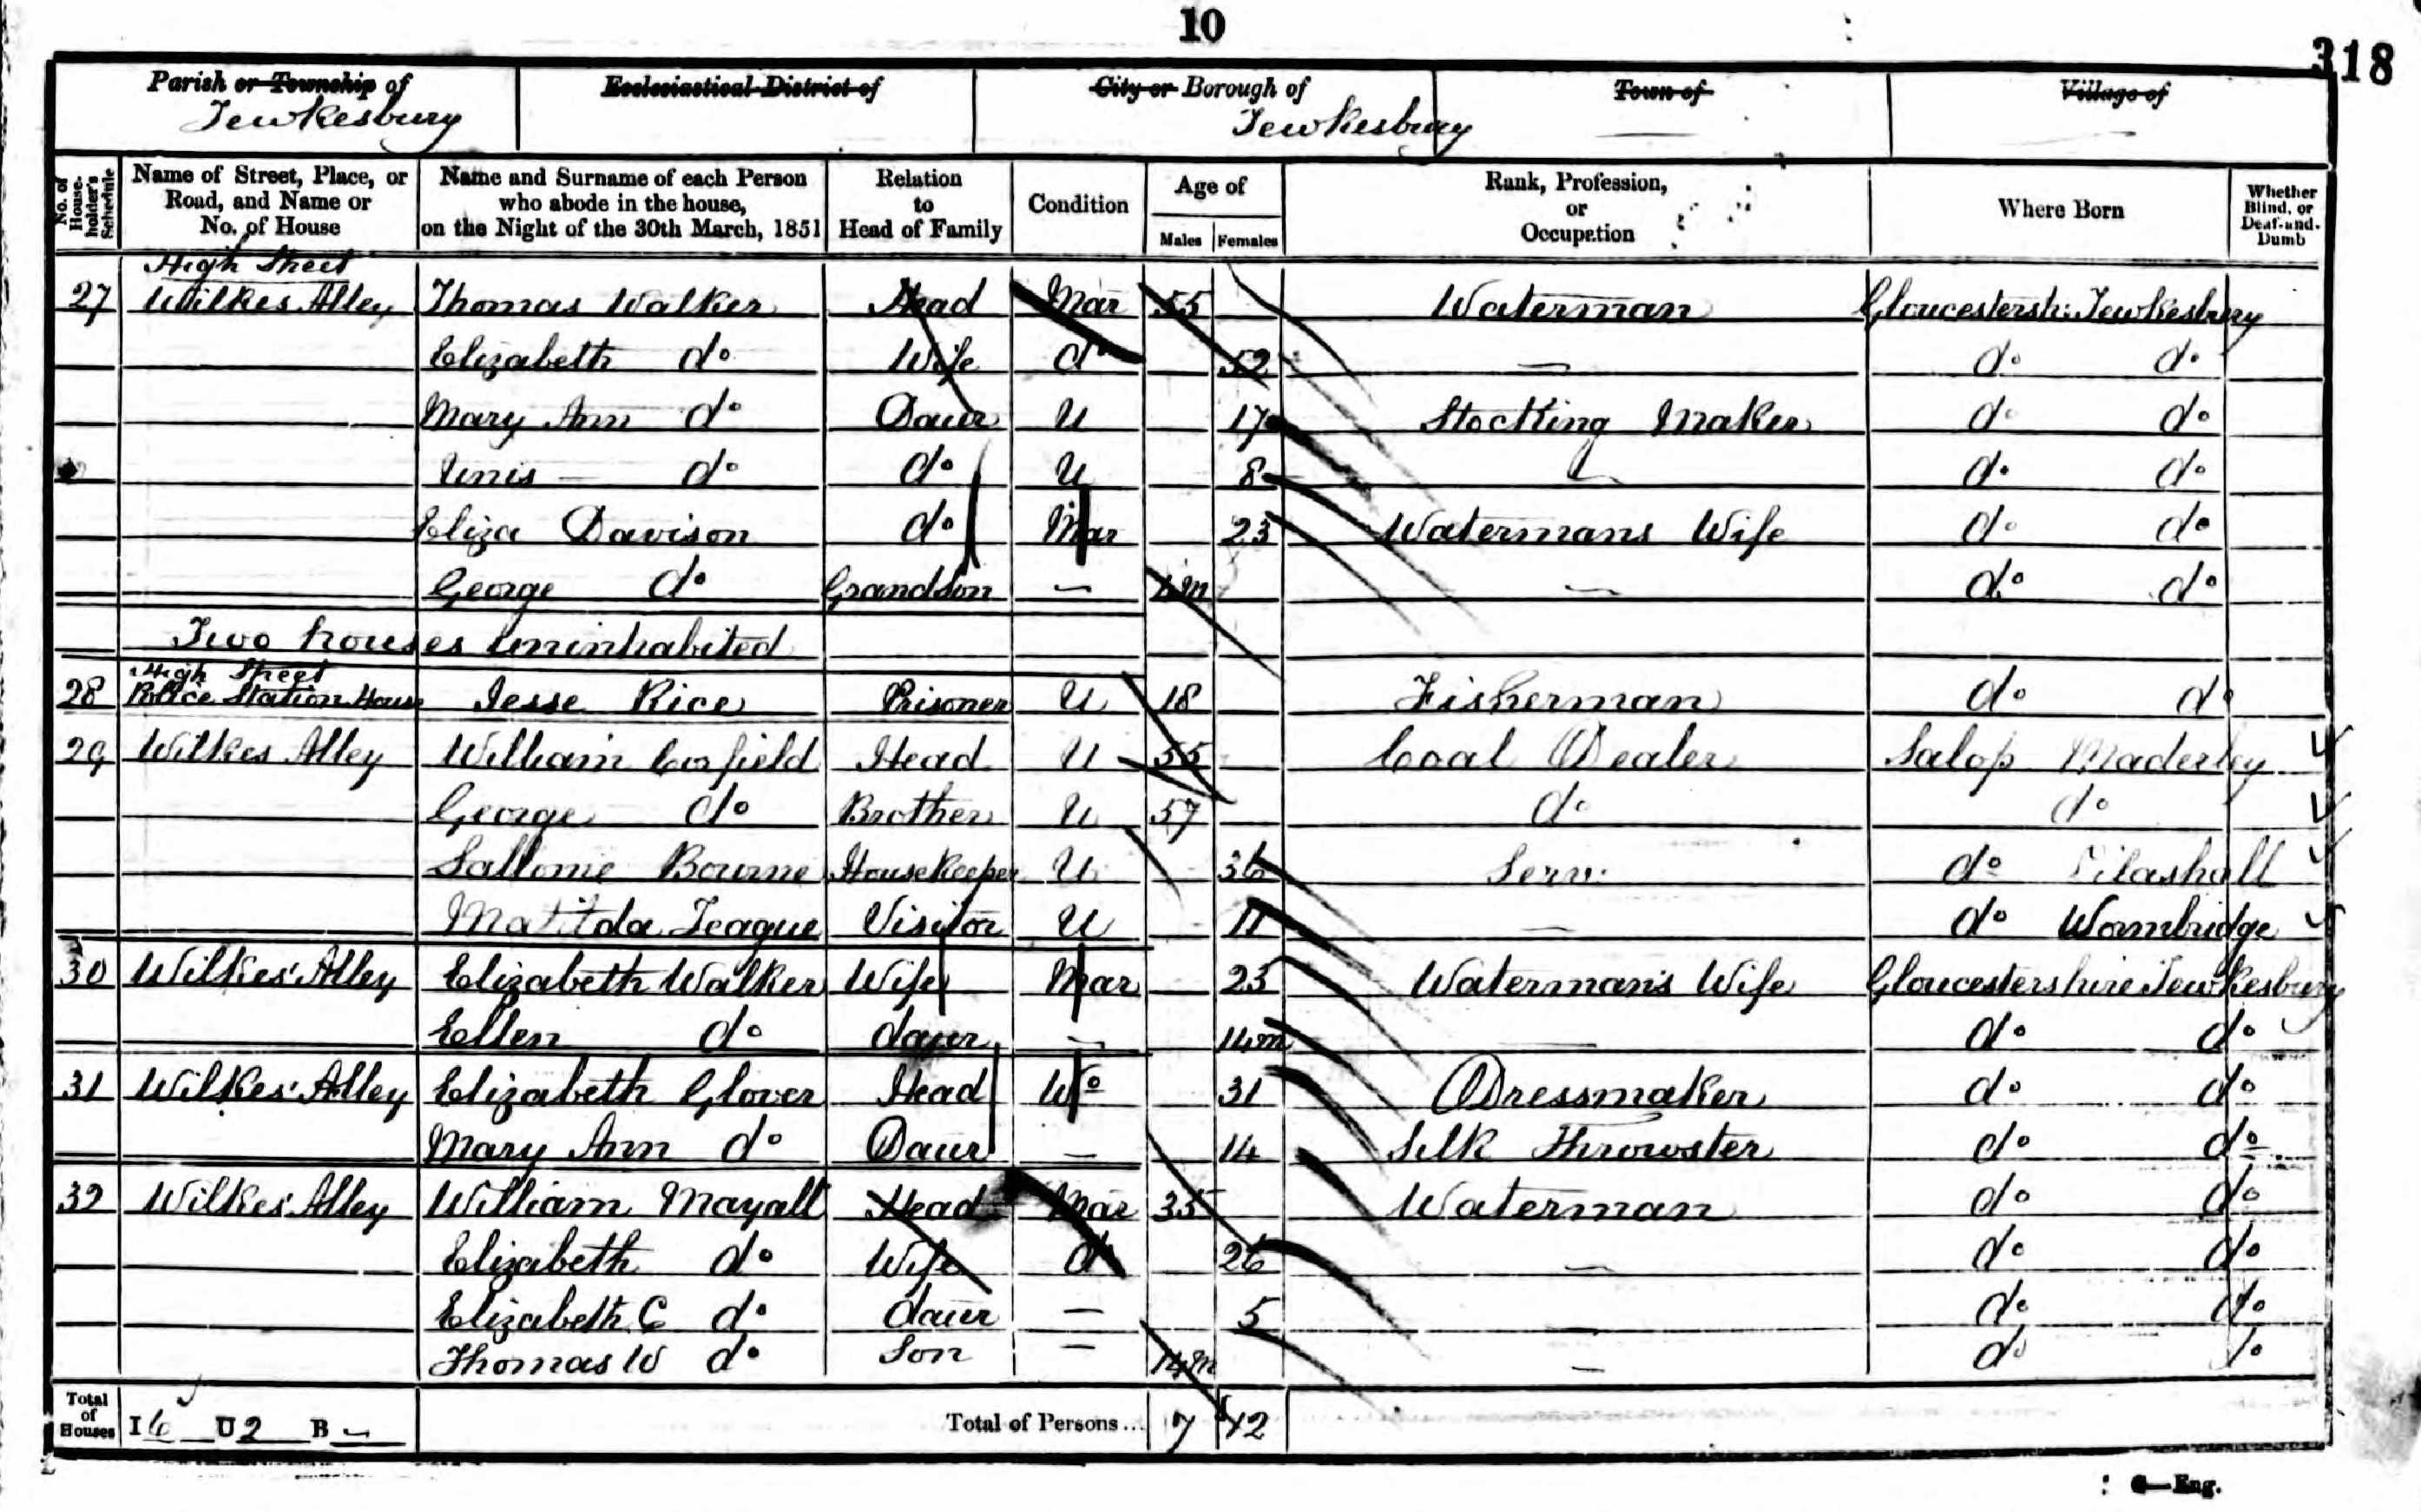 10
318
Parish or Township of Ecclesiastical District of City or Borough of Town of Village of
Tewkesbury Tewkesbury
No. of House-holder's Schedule Name of Street, Place, or Road, and Name or No. of House Name and Surname of each Person who abode in the house, on the Night of the 30th March, 1851 Relation to Head of Family Condition Age of Males Females Rank, Profession, or Occupation Where Born Whether Blind, or Deaf-and-Dumb
High Street
27 Wilkes Alley Thomas Walker Head Mar 55 Waterman Gloucestersh: Tewkesbury
Elizabeth do Wife do 52 — do do
Mary Ann do Daur U 17 Stocking Maker do do
Unis do do U 8 — do do
Eliza Davison do Mar 23 Watermans Wife do do
George do Grandson — — do do
Two houses uninhabited
High Street
28 Police Station House Jesse Rice Prisoner U 18 Fisherman do do
29 Wilkes Alley William Corfield Head U 55 Coal Dealer Salop Maderley
George do Brother U 57 do do
Sallome Bourne Housekeeper U 36 Serv: do
Matilda Teague Visitor U 11 — do Wombridge
30 Wilkes' Alley Elizabeth Walker Wife Mar 23 Waterman's Wife Gloucestershire Tewkesbury
Ellen do daur — 14m — do do
31 Wilkes' Alley Elizabeth Glover Head Wo 31 Dressmaker do do
Mary Ann do Daur — 14 Silk Throwster do do
32 Wilkes' Alley William Mayall Head Mar 35 Waterman do do
Elizabeth do Wife do 26 — do do
Elizabeth C do daur — 5 — do do
Thomas W do Son — 14m — do do
Total of Houses I 6 U 2 B — Total of Persons... 7 12
C—Eng.